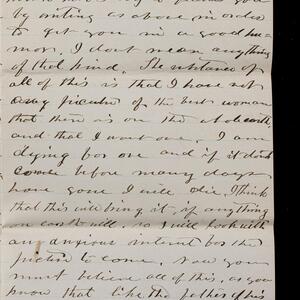 you
by writing as above in order
to get you in a good hu-
mor. I dont mean anything
of that kind. The substance of
all of this is that I have not
any picture of the best woman
that there is on the earth
and that I want one. I am
dying for one and if it dont
come before many days
have gone I will die. I think
that this will bring it, if anything
on earth will, so I will look with
an anxious interest for the
picture to come. Now you
must believe all of this, as you
know that like the father this